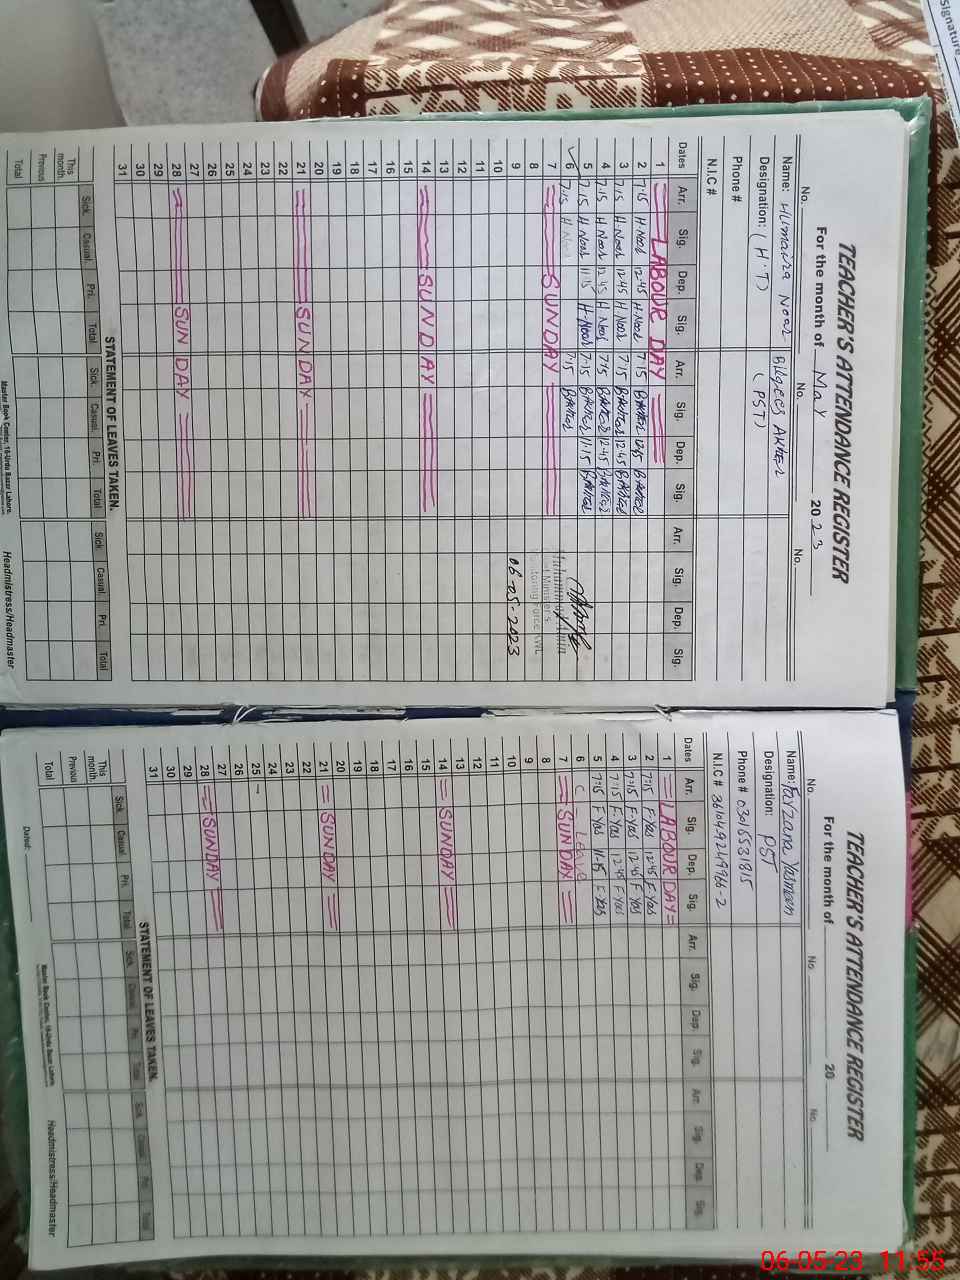 TEACHER'S ATTENDANCE REGISTER
For the month of May 2023
No. No. No.
Name: Humaira Noor Bilqees Akhter
Designation: (H.T) (PST)
Phone #
N.I.C #
Dates Arr. Sig. Dep. Sig. Arr. Sig. Dep. Sig. Arr. Sig. Dep. Sig.
1 LABOUR DAY
2 7:15 H.Noor 12:45 H.Noor 7:15 B.Akhter 12:45 B.Akhter
3 7:15 H.Noor 12:45 H.Noor 7:15 B.Akhter 12:45 B.Akhter
4 7:15 H.Noor 12:45 H.Noor 7:15 B.Akhter 12:45 B.Akhter
5 7:15 H.Noor 11:15 H.Noor 7:15 B.Akhter 11:15 B.Akhter
6 7:15 H.Noor 7:15 B.Akhter
7 SUNDAY
8
9 06-05-2023
10
11
12
13
14 SUNDAY
15
16
17
18
19
20
21 SUNDAY
22
23
24
25
26
27
28 SUNDAY
29
30
31
STATEMENT OF LEAVES TAKEN.
Sick. Casual. Pri. Total Sick. Casual. Pri. Total Sick Casual. Pri. Total
This month.
Previous
Total
Master Book Center, 16-Urdu Bazar Lahore.
Headmistress/Headmaster
TEACHER'S ATTENDANCE REGISTER
For the month of 20
No. No. No.
Name: Farzana Yasmeen
Designation: PST
Phone # 03015531815
N.I.C # 36104-9249966-2
Dates Arr. Sig. Dep. Sig. Arr. Sig. Dep. Sig. Arr. Sig. Dep. Sig.
1 LABOUR DAY
2 7:15 F.Yas 12:45 F.Yas
3 7:15 F.Yas 12:45 F.Yas
4 7:15 F.Yas 12:45 F.Yas
5 7:15 F.Yas 11:15 F.Yas
6 C - Leave
7 SUNDAY
8
9
10
11
12
13
14 SUNDAY
15
16
17
18
19
20
21 SUNDAY
22
23
24
25
26
27
28 SUNDAY
29
30
31
STATEMENT OF LEAVES TAKEN.
Sick Casual Pri. Total Sick Casual Pri. Total Sick Casual Pri. Total
This month.
Previous
Total
Dated:
Master Book Center, 16-Urdu Bazar Lahore.
Headmistress/Headmaster
Signature
06-05-23 11:55